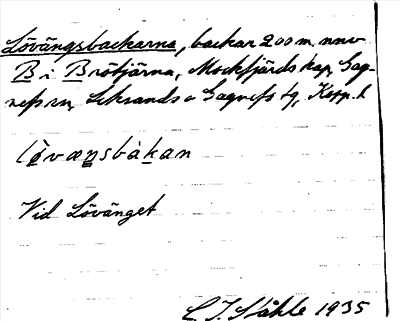 Lövängsbackarna, backar 200 m nnv
B i Brötjärna, Mockfjärds kap, Gag-
nefs sn, Leksands o Gagnefs tg, Kopp. l
lövæŋsbàkan
Vid Lövänget
C. J. Ståhle 1935